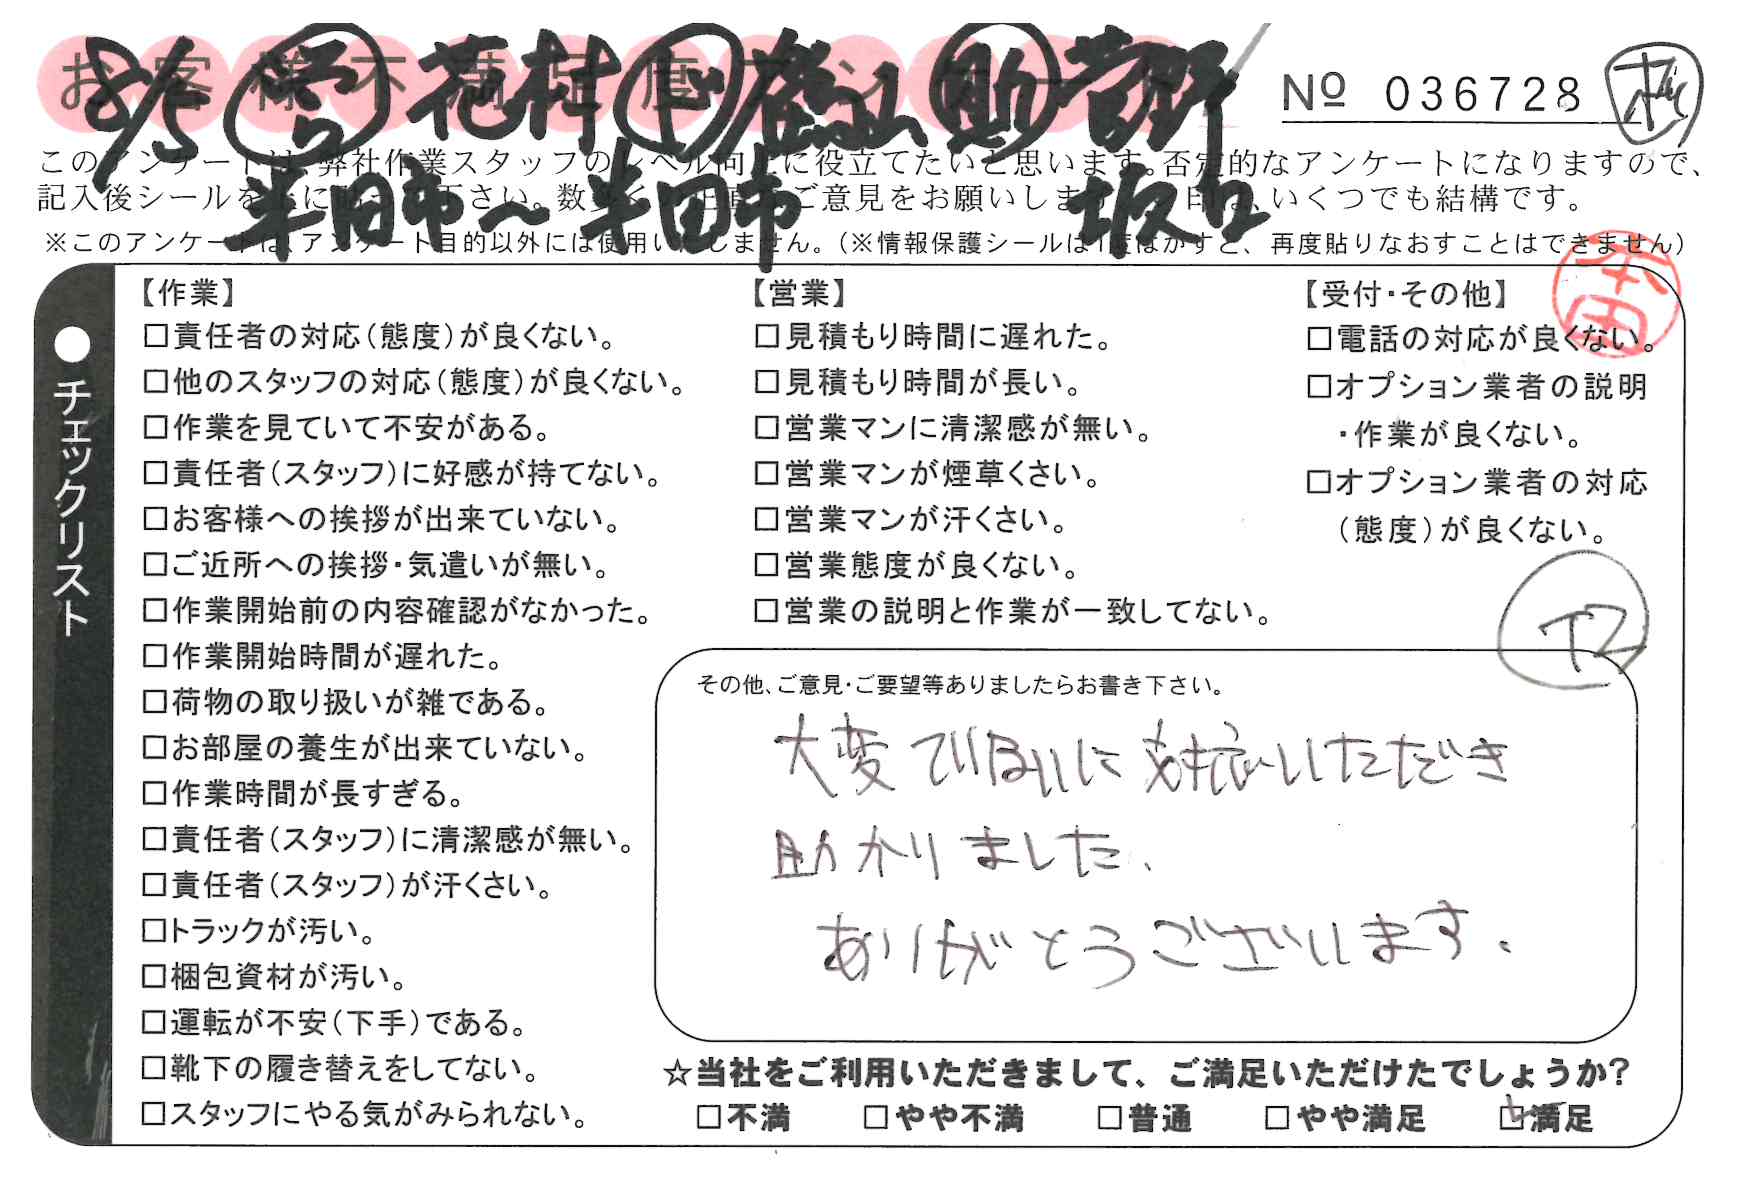 お客様不満足度アンケート
8/5 営 花村 ド 篠山 助 菅野
半田市～半田市 坂口
№ 036728
このアンケートは、弊社作業スタッフのレベル向上に役立てたいと思います。否定的なアンケートになりますので、
記入後シールを上に貼って下さい。数多くの正直なご意見をお願いします。レ印は、いくつでも結構です。
※このアンケートは、アンケート目的以外には使用いたしません。(※情報保護シールは1度はがすと、再度貼りなおすことはできません)
本田
●チェックリスト
【作業】
□責任者の対応(態度)が良くない。
□他のスタッフの対応(態度)が良くない。
□作業を見ていて不安がある。
□責任者(スタッフ)に好感が持てない。
□お客様への挨拶が出来ていない。
□ご近所への挨拶・気遣いが無い。
□作業開始前の内容確認がなかった。
□作業開始時間が遅れた。
□荷物の取り扱いが雑である。
□お部屋の養生が出来ていない。
□作業時間が長すぎる。
□責任者(スタッフ)に清潔感が無い。
□責任者(スタッフ)が汗くさい。
□トラックが汚い。
□梱包資材が汚い。
□運転が不安(下手)である。
□靴下の履き替えをしてない。
□スタッフにやる気がみられない。
【営業】
□見積もり時間に遅れた。
□見積もり時間が長い。
□営業マンに清潔感が無い。
□営業マンが煙草くさい。
□営業マンが汗くさい。
□営業態度が良くない。
□営業の説明と作業が一致してない。
【受付・その他】
□電話の対応が良くない。
□オプション業者の説明
・作業が良くない。
□オプション業者の対応
(態度)が良くない。
その他、ご意見・ご要望等ありましたらお書き下さい。
大変ていねいに対応いただき
助かりました、
ありがとうございます、
☆当社をご利用いただきまして、ご満足いただけたでしょうか?
□不満 □やや不満 □普通 □やや満足 ☑満足